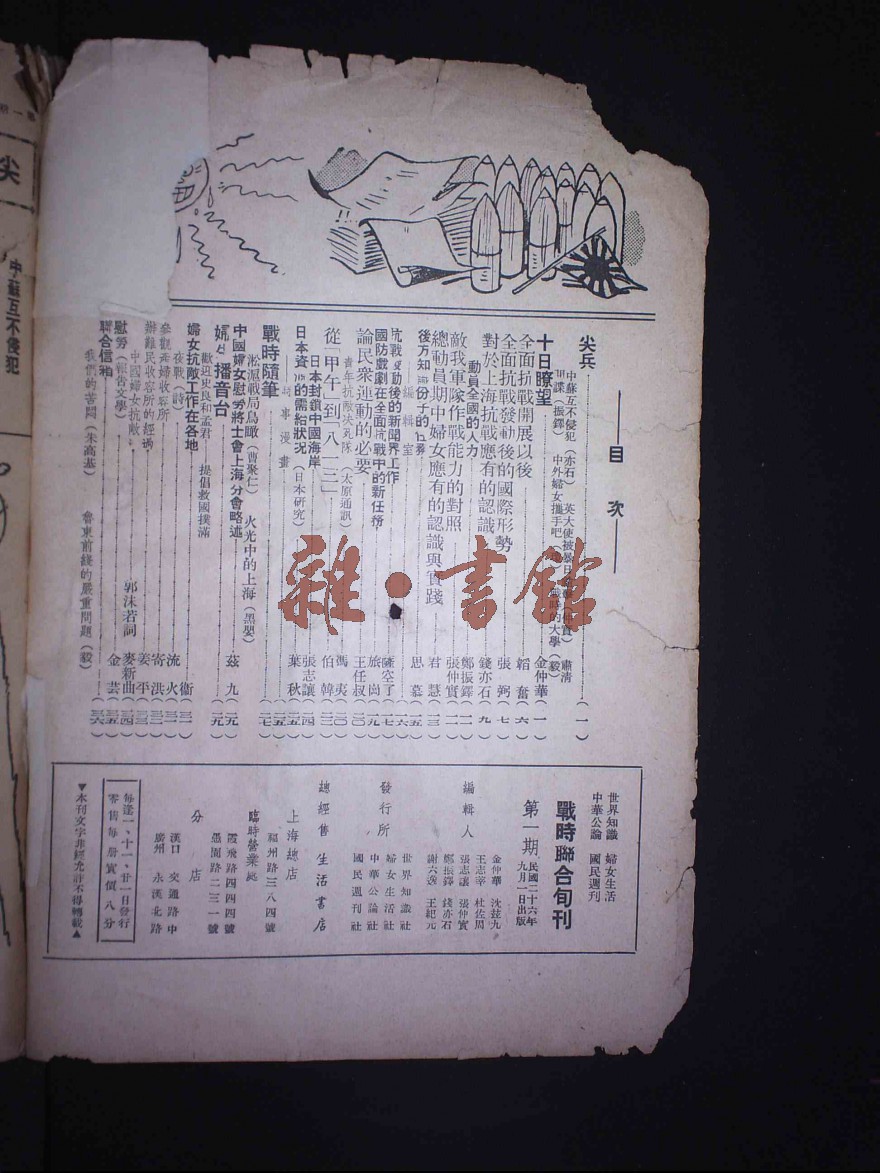 目次
尖兵……(一)
中蘇互不侵犯(亦石)
肅清
(振鐸) 中外婦女攜手吧
時的大學(毅)
十日瞭望……金仲華(一)
全面抗戰開展以後……韜奮(六)
全面抗戰發動後的國際形勢……張弼(七)
對於上海抗戰應有的認識……錢亦石(九)
動員全國的人力……鄭振鐸(一一)
敵我軍隊作戰能力的對照……張仲實(一二)
總動員期中婦女應有的認識與實踐……君慧(一三)
後方知識份子的任務……思慕(一五)
編輯室
抗戰發動後的新聞界工作……薩空了(一七)
國防戲劇在全面抗戰中的新任務……旅岡(一九)
論民衆運動的必要……王任叔(二〇)
青年抗敵決死隊(太原通訊)……馮夷(二〇)
從「甲午」到「八一三」……伯韓
日本封鎖中國海岸……張志讓
日本資源的需給狀況(日本研究)……葉秋
時事漫畫
戰時隨筆
淞滬戰局鳥瞰(曹聚仁) 火光中的上海(黑嬰)
中國婦女慰勞將士會上海分會略述……茲九
婦女播音台
歡迎史良和孟君 提倡救國撲滿
婦女抗敵工作在各地
夜戰(詩)……衞
參觀產婦收容所……流火
辦難民收容所的經過……寄洪
中國婦女抗敵……姜平
郭沫若詞 麥新曲
慰勞(報告文學)……金芸
聯合信箱
我們的苦悶(朱高基) 魯東前綫的嚴重問題(毅)
世界知識 婦女生活
中華公論 國民週刊
戰時聯合旬刊
第一期 民國二十六年九月一日出版
編輯人
金仲華 沈茲九
王志莘 杜佐周
張志讓 張仲實
鄭振鐸 錢亦石
謝六逸 王紀元
發行所
世界知識社
婦女生活社
中華公論社
國民週刊社
總經售 生活書店
上海總店
福州路三八四號
臨時營業處
霞飛路四四四號
愚園路二三一號
分店
漢口 交通路中
廣州 永漢北路
每逢一、十一、廿一日發行
零售每册實價八分
▼本刊文字非經允許不得轉載▲
尖
中蘇互不侵犯
雜·書館